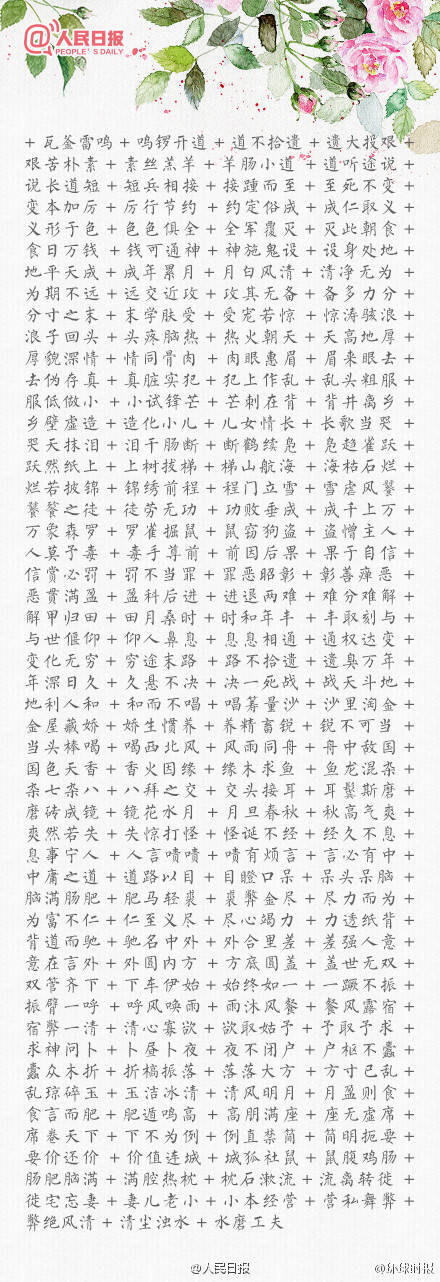 @人民日报
PEOPLE'S DAILY
+ 瓦釜雷鸣 + 鸣锣开道 + 道不拾遗 + 遗大投艰 +
艰苦朴素 + 素丝羔羊 + 羊肠小道 + 道听途说 +
说长道短 + 短兵相接 + 接踵而至 + 至死不变 +
变本加厉 + 厉行节约 + 约定俗成 + 成仁取义 +
义形于色 + 色色俱全 + 全军覆灭 + 灭此朝食 +
食日万钱 + 钱可通神 + 神施鬼设 + 设身处地 +
地平天成 + 成年累月 + 月白风清 + 清净无为 +
为期不远 + 远交近攻 + 攻其无备 + 备多力分 +
分寸之末 + 末学肤受 + 受宠若惊 + 惊涛骇浪 +
浪子回头 + 头疼脑热 + 热火朝天 + 天高地厚 +
厚貌深情 + 情同骨肉 + 肉眼惠眉 + 眉来眼去 +
去伪存真 + 真脏实犯 + 犯上作乱 + 乱头粗服 +
服低做小 + 小试锋芒 + 芒刺在背 + 背井离乡 +
乡壁虚造 + 造化小儿 + 儿女情长 + 长歌当哭 +
哭天抹泪 + 泪干肠断 + 断鹤续凫 + 凫趋雀跃 +
跃然纸上 + 上树拔梯 + 梯山航海 + 海枯石烂 +
烂若披锦 + 锦绣前程 + 程门立雪 + 雪虐风饕 +
饕餮之徒 + 徒劳无功 + 功败垂成 + 成千上万 +
万象森罗 + 罗雀掘鼠 + 鼠窃狗盗 + 盗憎主人 +
人莫予毒 + 毒手尊前 + 前因后果 + 果于自信 +
信赏必罚 + 罚不当罪 + 罪恶昭彰 + 彰善瘅恶 +
恶贯满盈 + 盈科后进 + 进退两难 + 难分难解 +
解甲归田 + 田月桑时 + 时和年丰 + 丰取刻与 +
与世偃仰 + 仰人鼻息 + 息息相通 + 通权达变 +
变化无穷 + 穷途末路 + 路不拾遗 + 遗臭万年 +
年深日久 + 久悬不决 + 决一死战 + 战天斗地 +
地利人和 + 和而不唱 + 唱筹量沙 + 沙里淘金 +
金屋藏娇 + 娇生惯养 + 养精畜锐 + 锐不可当 +
当头棒喝 + 喝西北风 + 风雨同舟 + 舟中敌国 +
国色天香 + 香火因缘 + 缘木求鱼 + 鱼龙混杂 +
杂七杂八 + 八拜之交 + 交头接耳 + 耳鬓斯磨 +
磨砖成镜 + 镜花水月 + 月旦春秋 + 秋高气爽 +
爽然若失 + 失惊打怪 + 怪诞不经 + 经久不息 +
息事宁人 + 人言啧啧 + 啧有烦言 + 言必有中 +
中庸之道 + 道路以目 + 目瞪口呆 + 呆头呆脑 +
脑满肠肥 + 肥马轻裘 + 裘弊金尽 + 尽力而为 +
为富不仁 + 仁至义尽 + 尽心竭力 + 力透纸背 +
背道而驰 + 驰名中外 + 外合里差 + 差强人意 +
意在言外 + 外圆内方 + 方底圆盖 + 盖世无双 +
双管齐下 + 下车伊始 + 始终如一 + 一蹶不振 +
振臂一呼 + 呼风唤雨 + 雨沐风餐 + 餐风露宿 +
宿弊一清 + 清心寡欲 + 欲取姑予 + 予取予求 +
求神问卜 + 卜昼卜夜 + 夜不闭户 + 户枢不蠹 +
蠹众木折 + 折槁振落 + 落落大方 + 方寸已乱 +
乱琼碎玉 + 玉洁冰清 + 清风明月 + 月盈则食 +
食言而肥 + 肥遁鸣高 + 高朋满座 + 座无虚席 +
席卷天下 + 下不为例 + 例直禁简 + 简明扼要 +
要价还价 + 价值连城 + 城狐社鼠 + 鼠腹鸡肠 +
肠肥脑满 + 满腔热枕 + 枕石漱流 + 流离转徙 +
徙宅忘妻 + 妻儿老小 + 小本经营 + 营私舞弊 +
弊绝风清 + 清尘浊水 + 水磨工夫
@人民日报
@环球时报